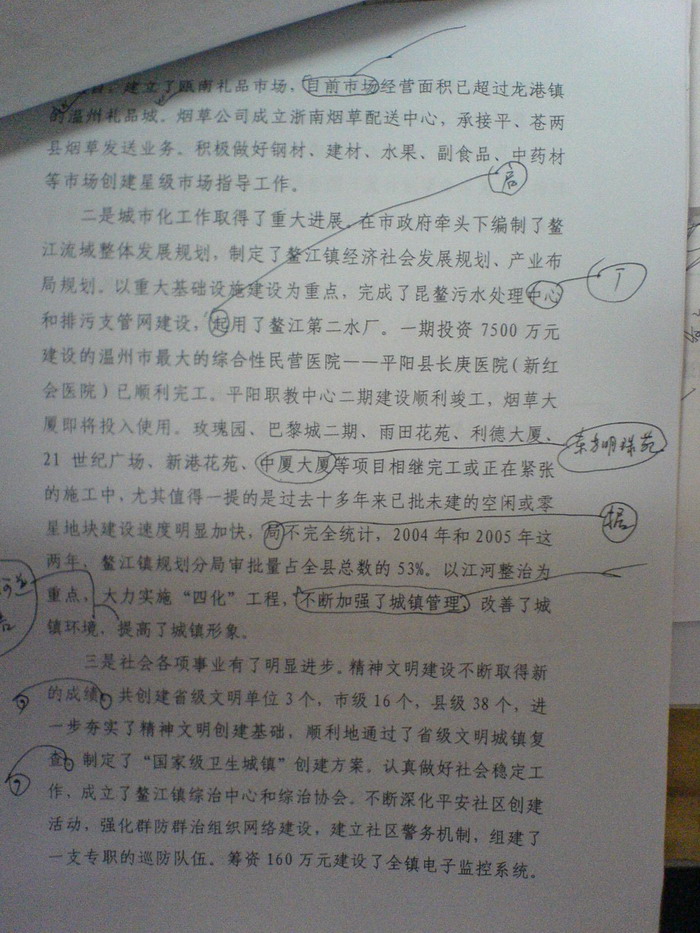 建立了瓯南礼品市场，目前市场经营面积已超过龙港镇
的温州礼品城。烟草公司成立浙南烟草配送中心，承接平、苍两
县烟草发送业务。积极做好钢材、建材、水果、副食品、中药材
等市场创建星级市场指导工作。
启
二是城市化工作取得了重大进展。在市政府牵头下编制了鳌
江流域整体发展规划，制定了鳌江镇经济社会发展规划、产业布
局规划。以重大基础设施建设为重点，完成了昆鳌污水处理中心
厂
和排污支管网建设，起用了鳌江第二水厂。一期投资 7500 万元
建设的温州市最大的综合性民营医院——平阳县长庚医院（新红
会医院）已顺利完工。平阳职教中心二期建设顺利竣工，烟草大
厦即将投入使用。玫瑰园、巴黎城二期、雨田花苑、利德大厦、
东方明珠苑
21 世纪广场、新港花苑、中厦大厦等项目相继完工或正在紧张
的施工中，尤其值得一提的是过去十多年来已批未建的空闲或零
星地块建设速度明显加快，局不完全统计，2004 年和 2005 年这
据
两年，鳌江镇规划分局审批量占全县总数的 53%。以江河整治为
重点，大力实施“四化”工程，不断加强了城镇管理，改善了城
镇环境，提高了城镇形象。
三是社会各项事业有了明显进步。精神文明建设不断取得新
的成绩。共创建省级文明单位 3 个，市级 16 个，县级 38 个，进
一步夯实了精神文明创建基础，顺利地通过了省级文明城镇复
查。制定了“国家级卫生城镇”创建方案。认真做好社会稳定工
作，成立了鳌江镇综治中心和综治协会。不断深化平安社区创建
活动，强化群防群治组织网络建设，建立社区警务机制，组建了
一支专职的巡防队伍。筹资 160 万元建设了全镇电子监控系统。